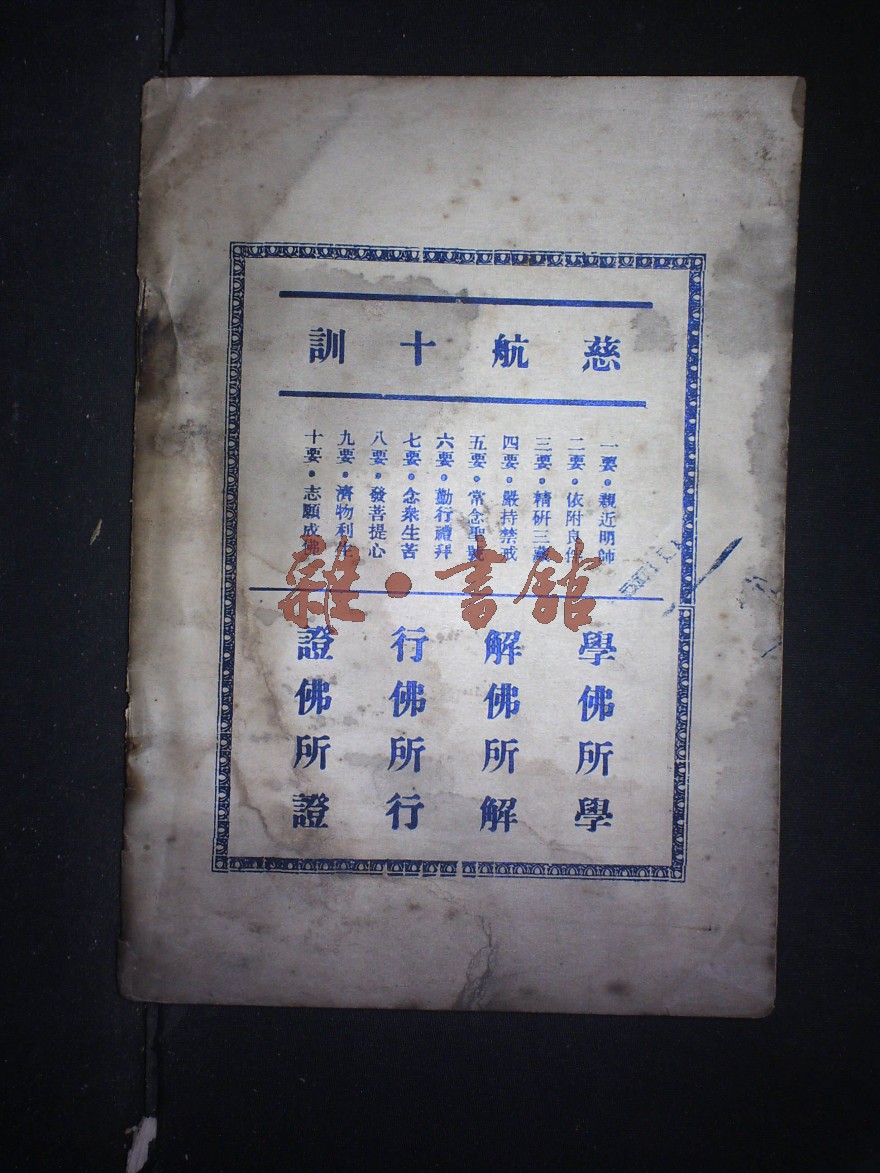 慈航十訓
一要・親近明師
二要・依附良伴
三要・精研三藏
四要・嚴持禁戒
五要・常念聖號
六要・勤行禮拜
七要・念衆生苦
八要・發菩提心
九要・濟物利生
十要・志願成佛
雜・書館
學佛所學
解佛所解
行佛所行
證佛所證